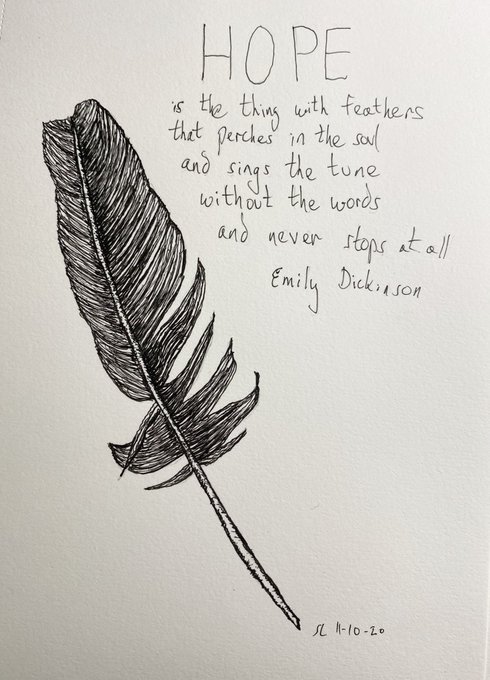 HOPE
is the thing with feathers
that perches in the soul
and sings the tune
without the words
and never stops at all
Emily Dickinson
SL 11-10-20